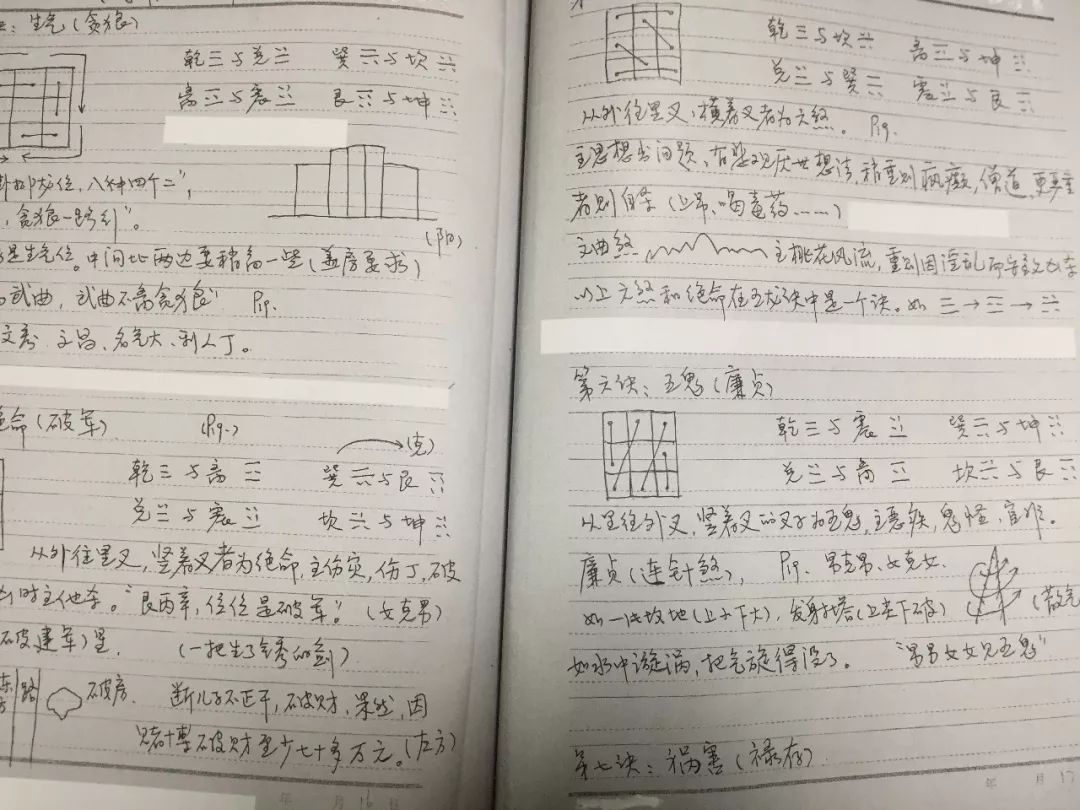 ：生气（贪狼）
乾☰与兑☱ 巽☴与坎☵
离☲与震☳ 艮☶与坤☷
卦 位，八种四个二”，
，贪狼一路引”。
（阳）
是生气位。中间比两边要稍高一些（盖房要求）
武曲，武曲不离贪狼” P19.
文秀 文昌、名气大、利人丁。
绝命（破军） （P19.）
（克）
乾☰与离☲ 巽☴与艮☶
兑☱与震☳ 坎☵与坤☷
从外往里叉，竖着叉者为绝命，主伤灾，伤丁，破
时主他杀。“艮丙辛，位位是破军”。（女克男）
破建军）星． （一把生了锈的剑）
东方 路 破房． 断儿子不正干，破财．果然，因
赌博破财至少七十多万元。（左方）
年 月 16 日
乾☰与坎☵ 离☲与坤☷
兑☱与巽☴ 震☳与艮☶
从外往里叉，横着叉者为六煞。 P19.
主思想出问题，有悲观厌世想法，稍重则疯癫，僧道，更严重
者则自杀（上吊、喝毒药……）
文曲煞 主桃花风流，重则因淫乱而
以上六煞和绝命在五龙诀中是一个诀。如☰→☲→☵
第六诀：五鬼（廉贞）
乾☰与震☳ 巽☴与坤☷
兑☱与离☲ 坎☵与艮☶
从里往外叉，竖着叉的叉子为五鬼，主恶疾，鬼怪，官非。
廉贞（连针煞）， P19. 男克男、女克女．
如一块坟地（上小下大），发射塔（上尖下破） （散气
如水中漩涡，把气旋得没了。 “男男女女见五鬼”
第七诀：祸害（禄存）
年 月 17